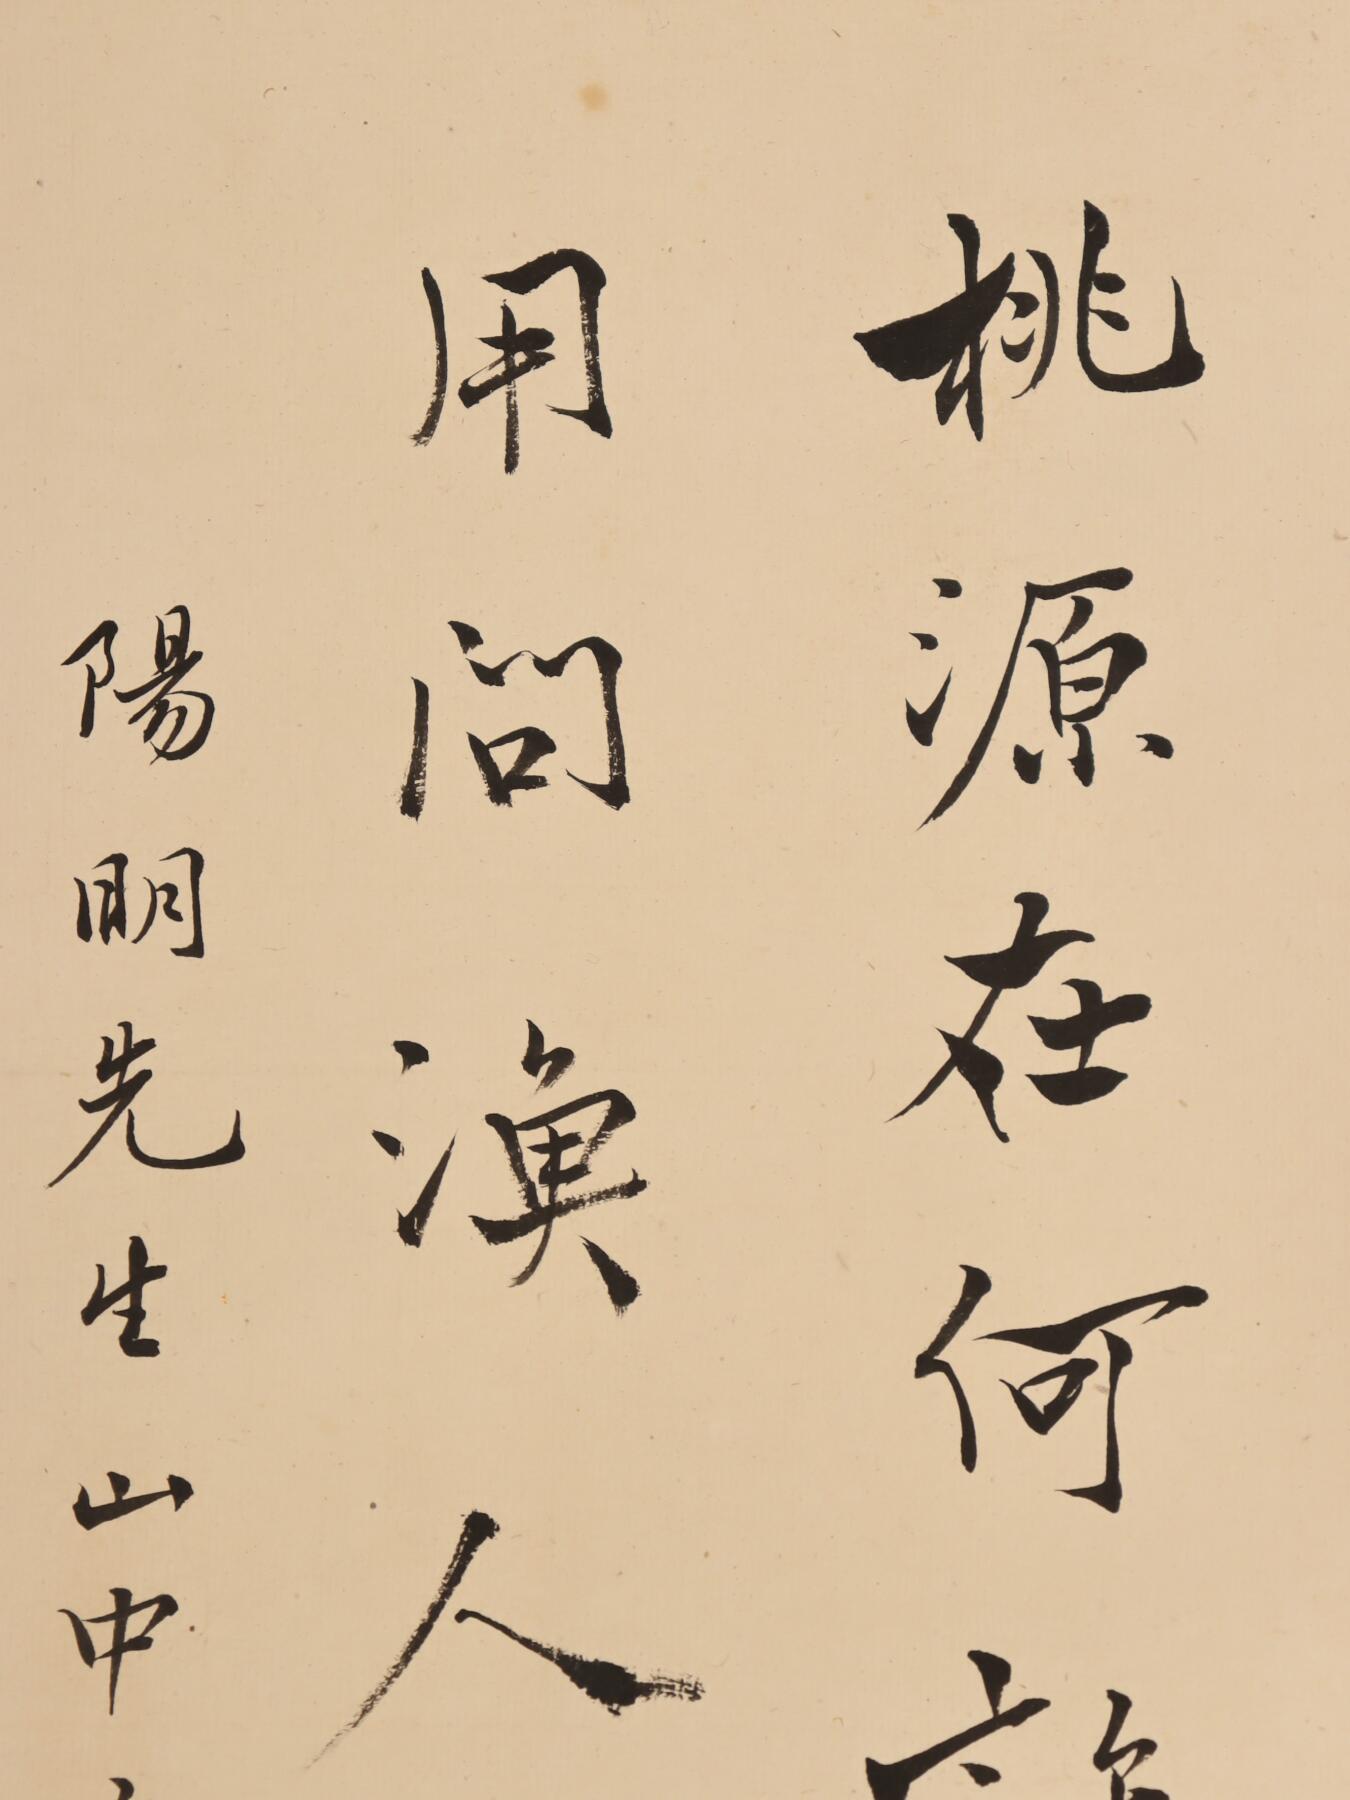 桃源在何
用問漁人
陽明先生山中